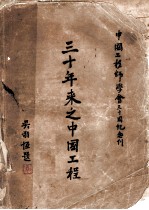 中國工程師學會三十周紀念刊
三十年來之中國工程
吳稚恒題